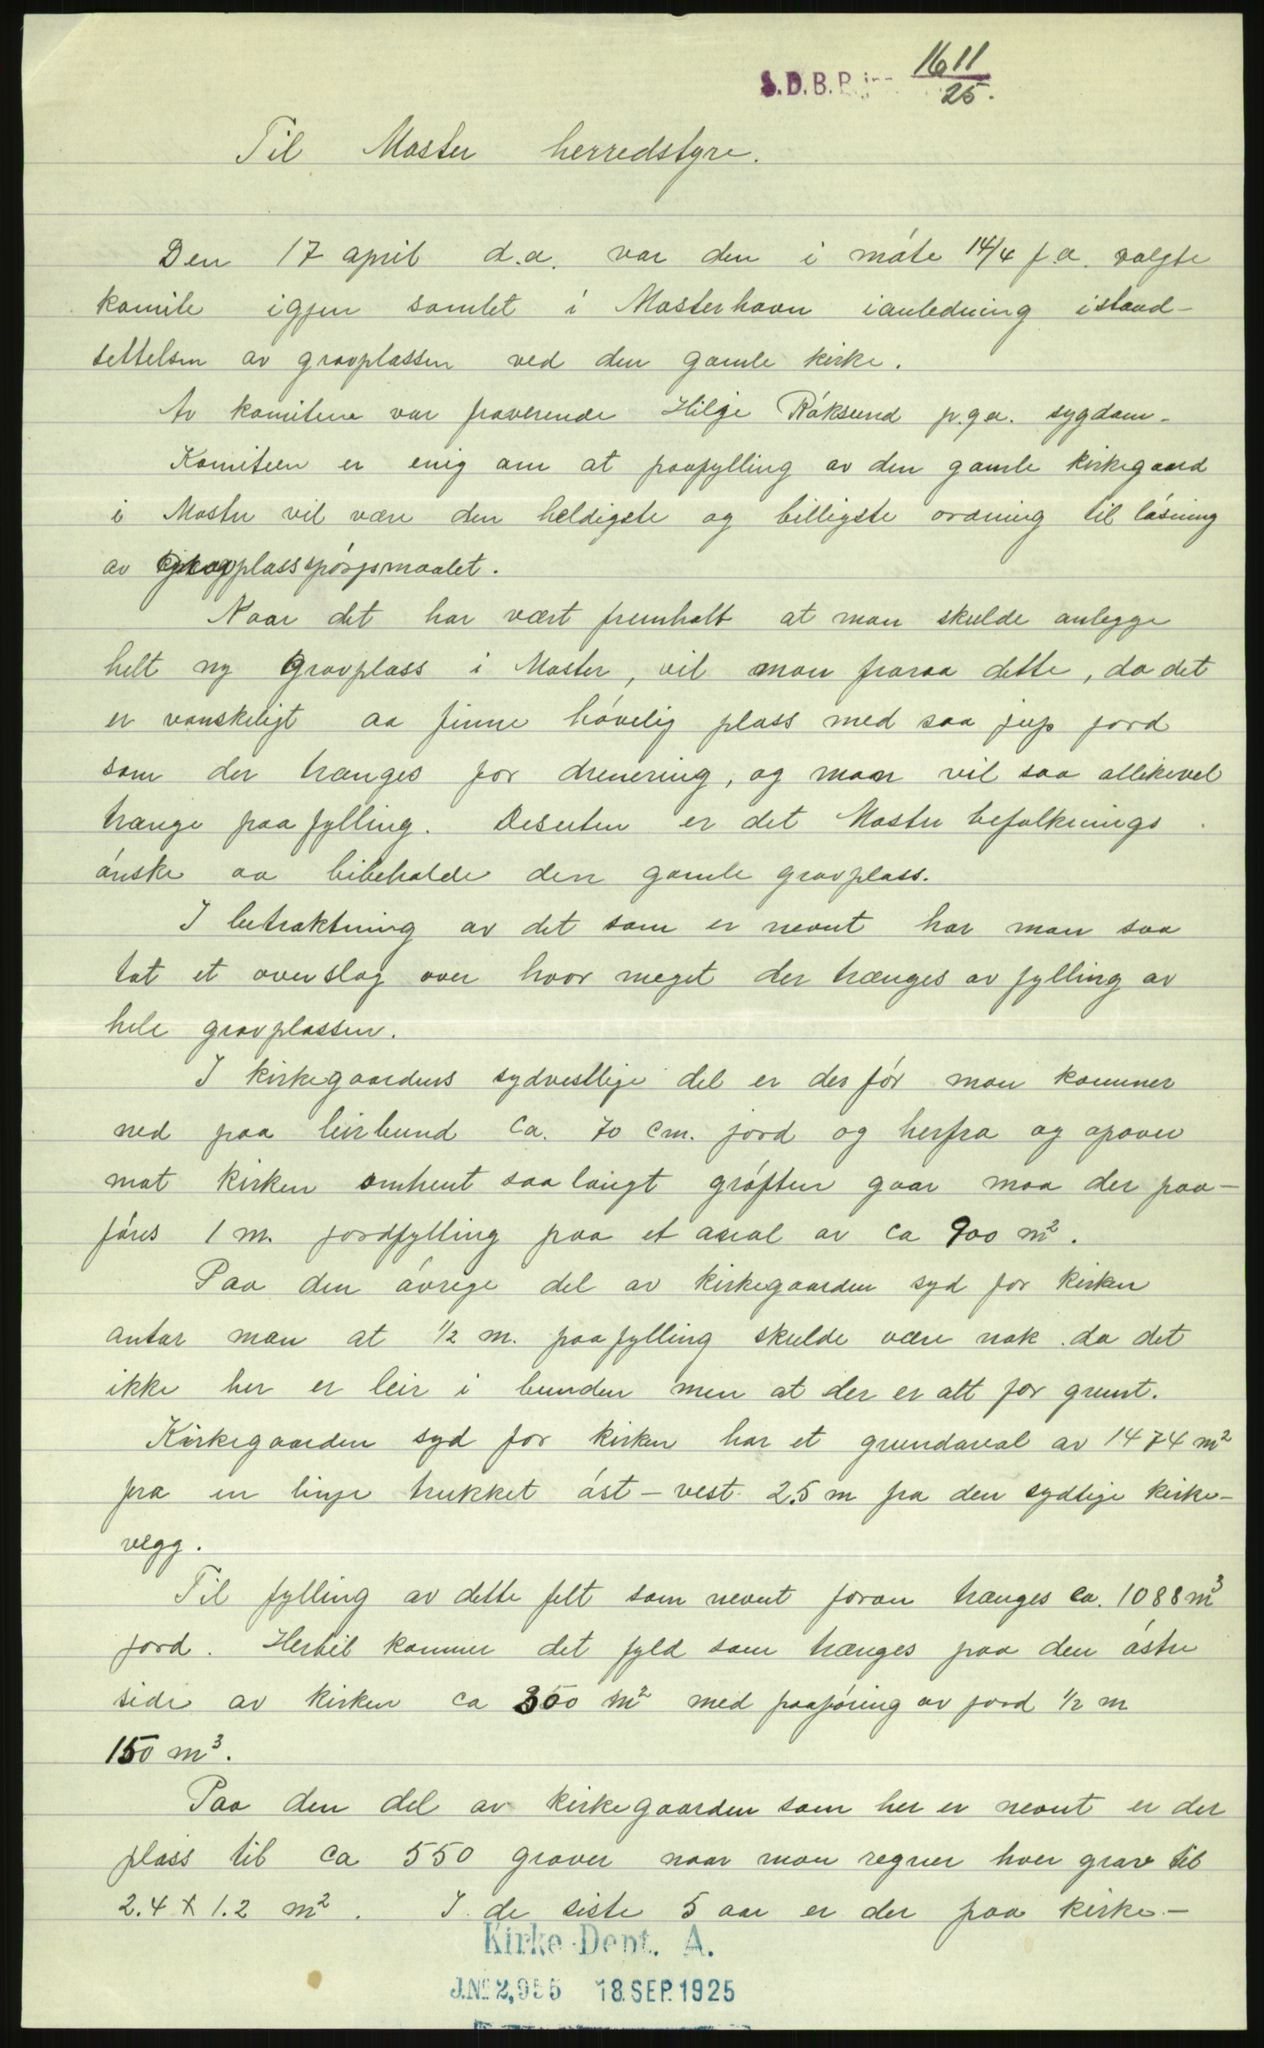 S.D.B.P. jnr 1611/25.
Til Moster herredstyre.
Den 17 april d.a. var den i móte 14/4 f.a. valgte
komite igjen samlet i Mosterhavn ianledning istand-
settelsen av gravplassen ved den gamle kirke.
Av komiteen var fraverende Hilge Róksund p.g.a. sygdom-
Komiteen er enig om at paafylling av den gamle kirkegaard
i Moster vil være den heldigste og billigste ordning til lósning
av gravplassspórjsmaalet.
Naar det har vært fremholt at man skulde anlegge
helt ny gravplass i Moster, vil man fraraa dette, da det
er vanskeligt aa finne hóvelig plass med saa jup jord
som der trænges for drenering, og man vil saa allikevel
trænge paafylling. Desuten er det Moster befolknings
ónske aa bibeholde den gamle gravplass.
I betraktning av det som er nevnt har man saa
tat et overslag over hvor meget der trænges av fylling av
hele gravplassen.
I kirkegaardens sydvestlige del er der fór man kommer
ned paa leirbund ca. 70 cm. jord og herfra og opover
mot kirken omtrent saa langt gróften gaar maa der paa-
fóres 1 m. jordfylling paa et areal av ca 900 m².
Paa den óvrige del av kirkegaarden syd for kirken
antar man at ½ m. paafylling skulde være nok da det
ikke her er leir i bunden men at der er alt for grunt.
Kirkegaarden syd for kirken har et grundareal av 1474 m²
fra en linje trukket óst-vest 2.5 m fra den sydlige kirke-
vegg.
Til fylling av dette felt som nevnt foran trænges ca. 1088 m³
jord. Hertil kommer det fyld som trænges paa den óstre
side av kirken ca 300 m² med paafóring av jord ½ m
150 m³.
Paa den del av kirkegaarden som her er nevnt er der
plass til ca 550 graver naar man regner hver grav til
2.4 x 1.2 m². I de siste 5 aar er der paa kirke-
Kirke-Dept. A.
J.No 2,955 18.SEP.1925